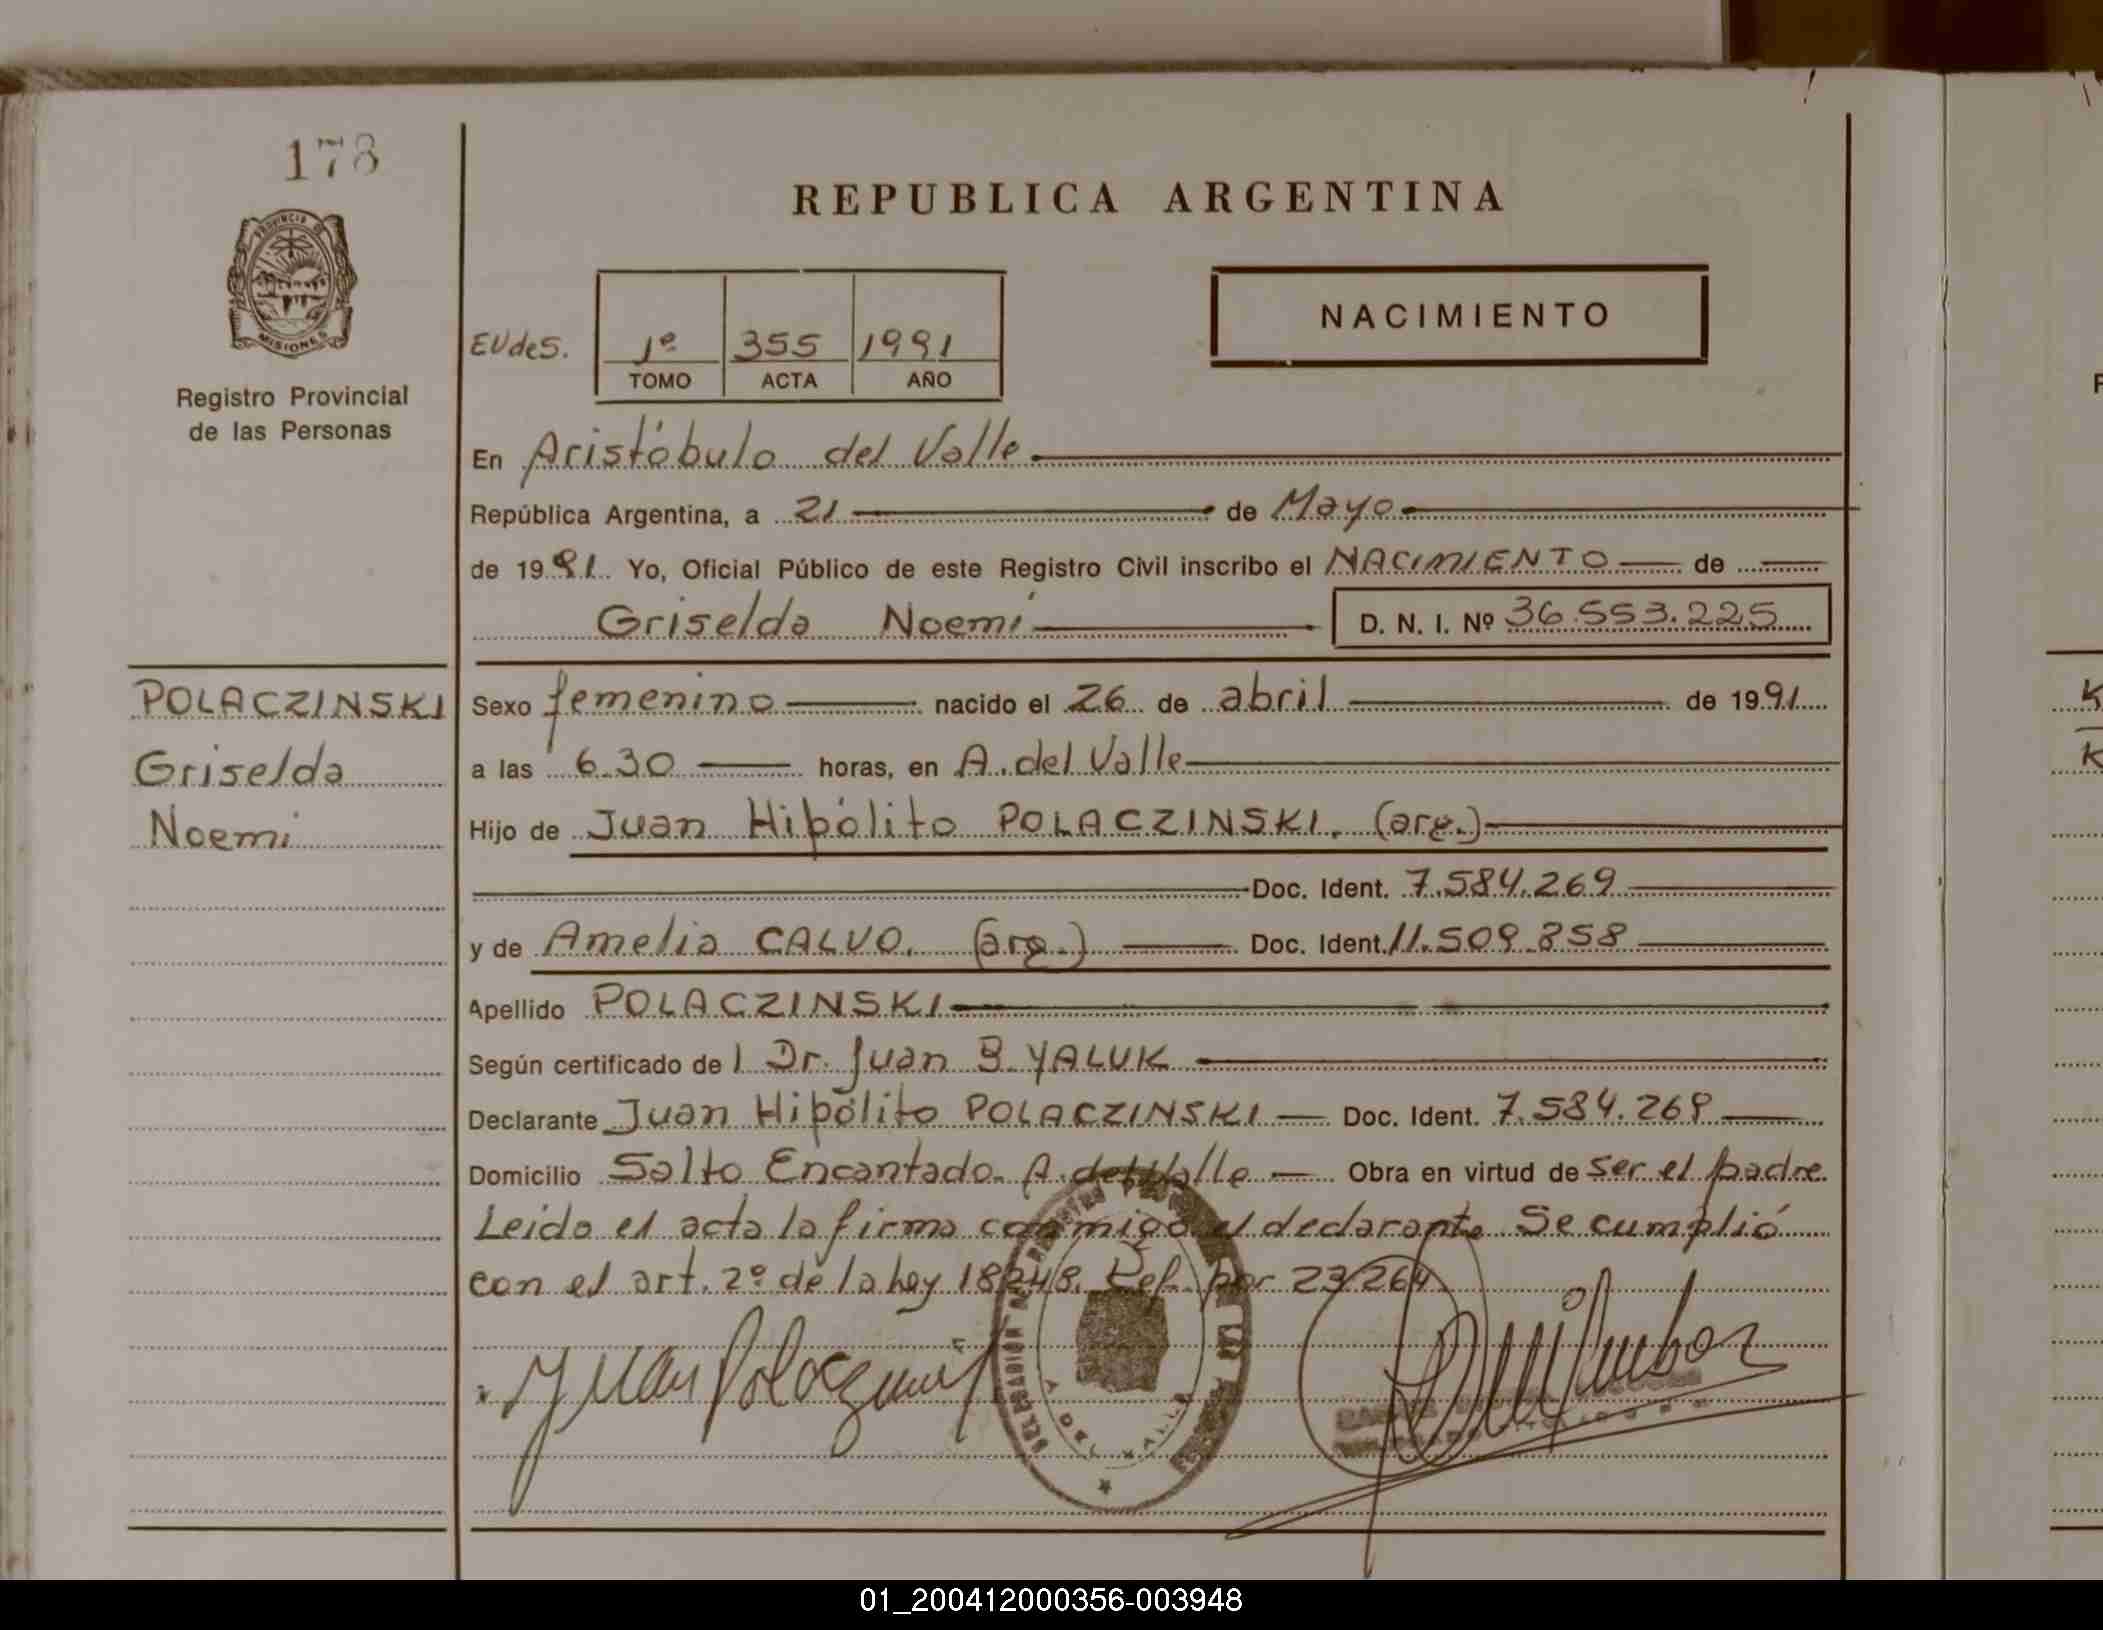 178
PROVINCIA DE
MISIONES
Registro Provincial
de las Personas
POLACZINSKI
Griselda
Noemi
REPUBLICA ARGENTINA
EUdeS.
1º 355 1991
TOMO ACTA AÑO
NACIMIENTO
En Aristóbulo del Valle
República Argentina, a 21 de Mayo
de 1991. Yo, Oficial Público de este Registro Civil inscribo el NACIMIENTO de
Griselda Noemí D. N. I. Nº 36.553.225
Sexo femenino nacido el 26 de abril de 1991
a las 6.30 horas, en A. del Valle
Hijo de Juan Hipólito POLACZINSKI. (arg.)
Doc. Ident. 7.584.269
y de Amelia CALVO. (arg.) Doc. Ident. 11.509.858
Apellido POLACZINSKI
Según certificado de l Dr. Juan B. YALUK
Declarante Juan Hipólito POLACZINSKI Doc. Ident. 7.584.269
Domicilio Salto Encantado. A. del Valle Obra en virtud de ser el padre.
Leida el acta la firma conmigo el declarante Se cumplió
con el art. 2º de la ley 18248. Ref. por 23264.
DELEGACION
A. DEL VALLE
01_200412000356-003948